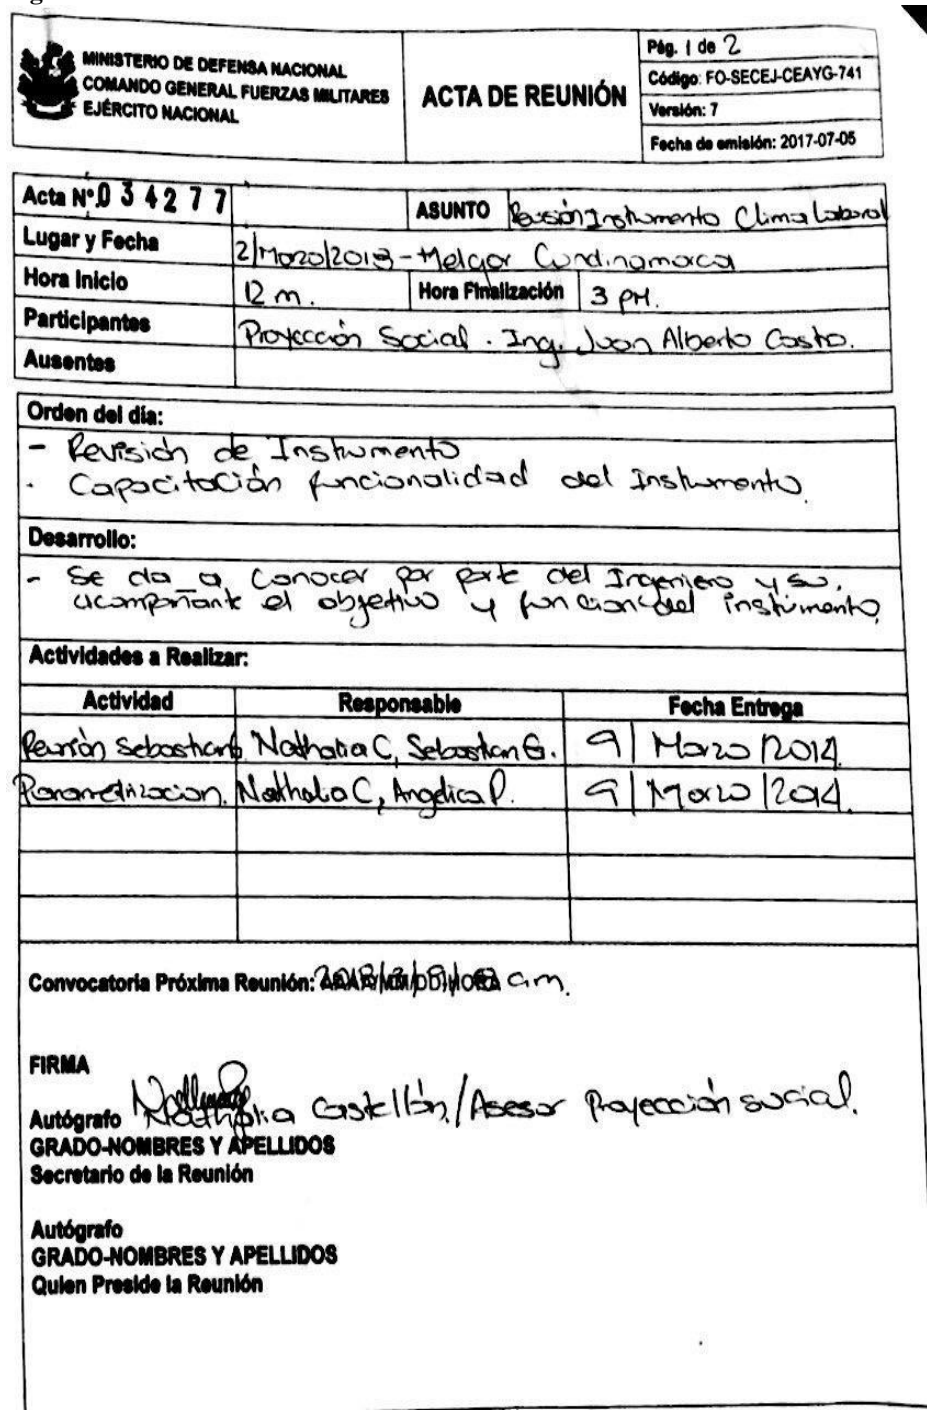 MINISTERIO DE DEFENSA NACIONAL
COMANDO GENERAL FUERZAS MILITARES
EJÉRCITO NACIONAL
ACTA DE REUNIÓN
Pág. 1 de 2
Código: FO-SECEJ-CEAYG-741
Versión: 7
Fecha de emisión: 2017-07-05
Acta Nº. 034277
ASUNTO Revisión Instrumento Clima Laboral
Lugar y Fecha 2/Marzo/2018 - Melgar Cundinamarca
Hora Inicio 12 m. Hora Finalización 3 PM.
Participantes Proyección Social. Ing. Juan Alberto Castro.
Ausentes
Orden del día:
- Revisión de Instrumento
- Capacitación funcionalidad del Instrumento.
Desarrollo:
- Se da a conocer por parte del Ingeniero y su
acompañante el objetivo y función del instrumento,
Actividades a Realizar:
Actividad Responsable Fecha Entrega
Reunión Sebastian G Nathalia C, Sebastian G. 9/Marzo/2014
Parametrizacion. Nathalia C, Angelica P. 9/Marzo/2014.
Convocatoria Próxima Reunión: am.
FIRMA
Autógrafo Nathalia Castellón/Asesor Proyección social.
GRADO-NOMBRES Y APELLIDOS
Secretario de la Reunión
Autógrafo
GRADO-NOMBRES Y APELLIDOS
Quien Preside la Reunión